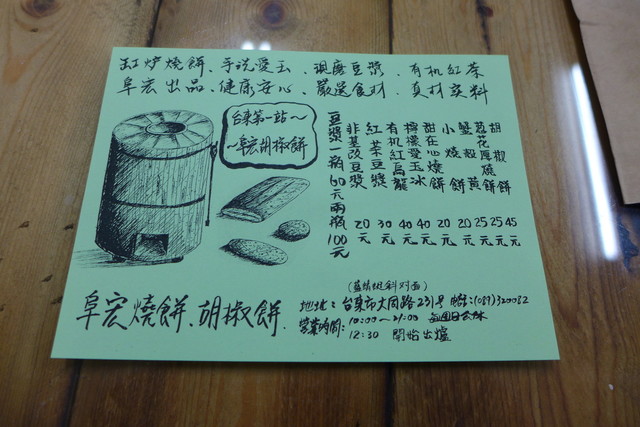 缸炉燒餅、手洗愛玉、現磨豆漿、有机紅茶
阜宏出品、健康安心、嚴選食材、真材实料
台東第一站～
～阜宏胡椒餅
胡椒餅 45元
蔥花厚燒餅 25元
蟹殼黃 25元
小燒餅 20元
甜在心燒餅 20元
檸檬愛玉冰 40元
有机紅烏龍 40元
紅茶豆漿 30元
非基改豆漿 20元
豆漿一瓶60元兩瓶100元
阜宏燒餅、胡椒餅、
(藍蜻蜓斜对面)
地址：台東市大同路231号 電話:(089)320082
營業時間：10:00～21:00 每週日公休
12:30 開始出爐